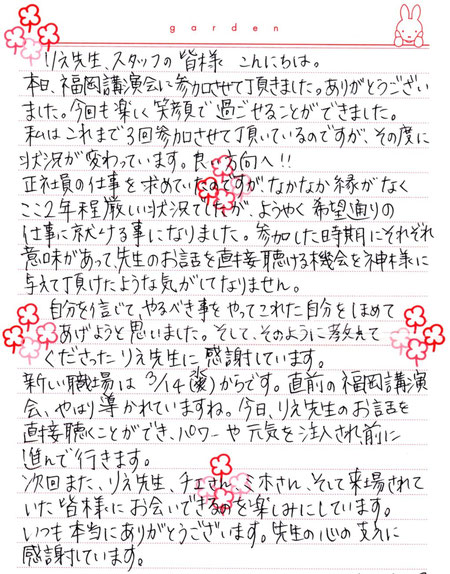 garden
りえ先生、スタッフの皆様 こんにちは。
本日、福岡講演会に参加させて頂きました。ありがとうござい
ました。今回も楽しく笑顔で過ごせることができました。
私はこれまで3回参加させて頂いているのですが、その度に
状況が変わっています。良い方向へ!!
正社員の仕事を求めていたのですが、なかなか縁がなく
ここ2年程厳しい状況でしたが、ようやく希望通りの
仕事に就ける事になりました。参加した時期にそれぞれ
意味があって、先生のお話を直接聴ける機会を神様に
与えて頂けたような気がしてなりません。
自分を信じて、やるべき事をやってこれた自分をほめて
あげようと思いました。そして、そのように教えて
くださったりえ先生に感謝しています。
新しい職場は3/14(火)からです。直前の福岡講演
会、やはり導かれていますね。今日、りえ先生のお話を
直接聴くことができ、パワーや元気を注入され前に
進んで行きます。
次回また、りえ先生、チエさん、ミホさん、そして来場されて
いた皆様にお会いできるのを楽しみにしています。
いつも本当にありがとうございます。先生の心の支えに
感謝しています。